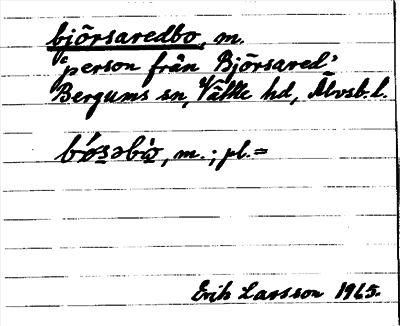 björsaredbo, m.
"person från Björsared"
Bergums sn, Vättle hd, Älvsb. l.
m.; pl. =
Erik Larsson 1965.